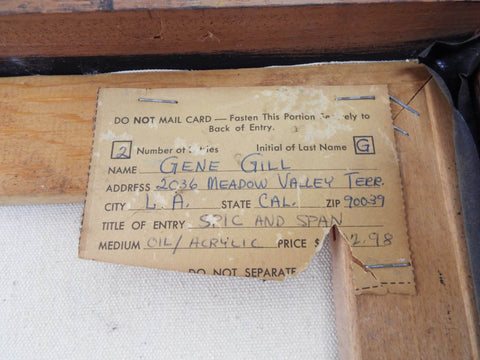 DO NOT MAIL CARD — Fasten This Portion Securely to
Back of Entry.
2 Number of Entries Initial of Last Name G
NAME GENE GILL
ADDRESS 2036 MEADOW VALLEY TERR.
CITY L.A. STATE CAL. ZIP 90039
TITLE OF ENTRY SPIC AND SPAN
MEDIUM OIL/ACRYLIC PRICE $ 2.98
DO NOT SEPARATE